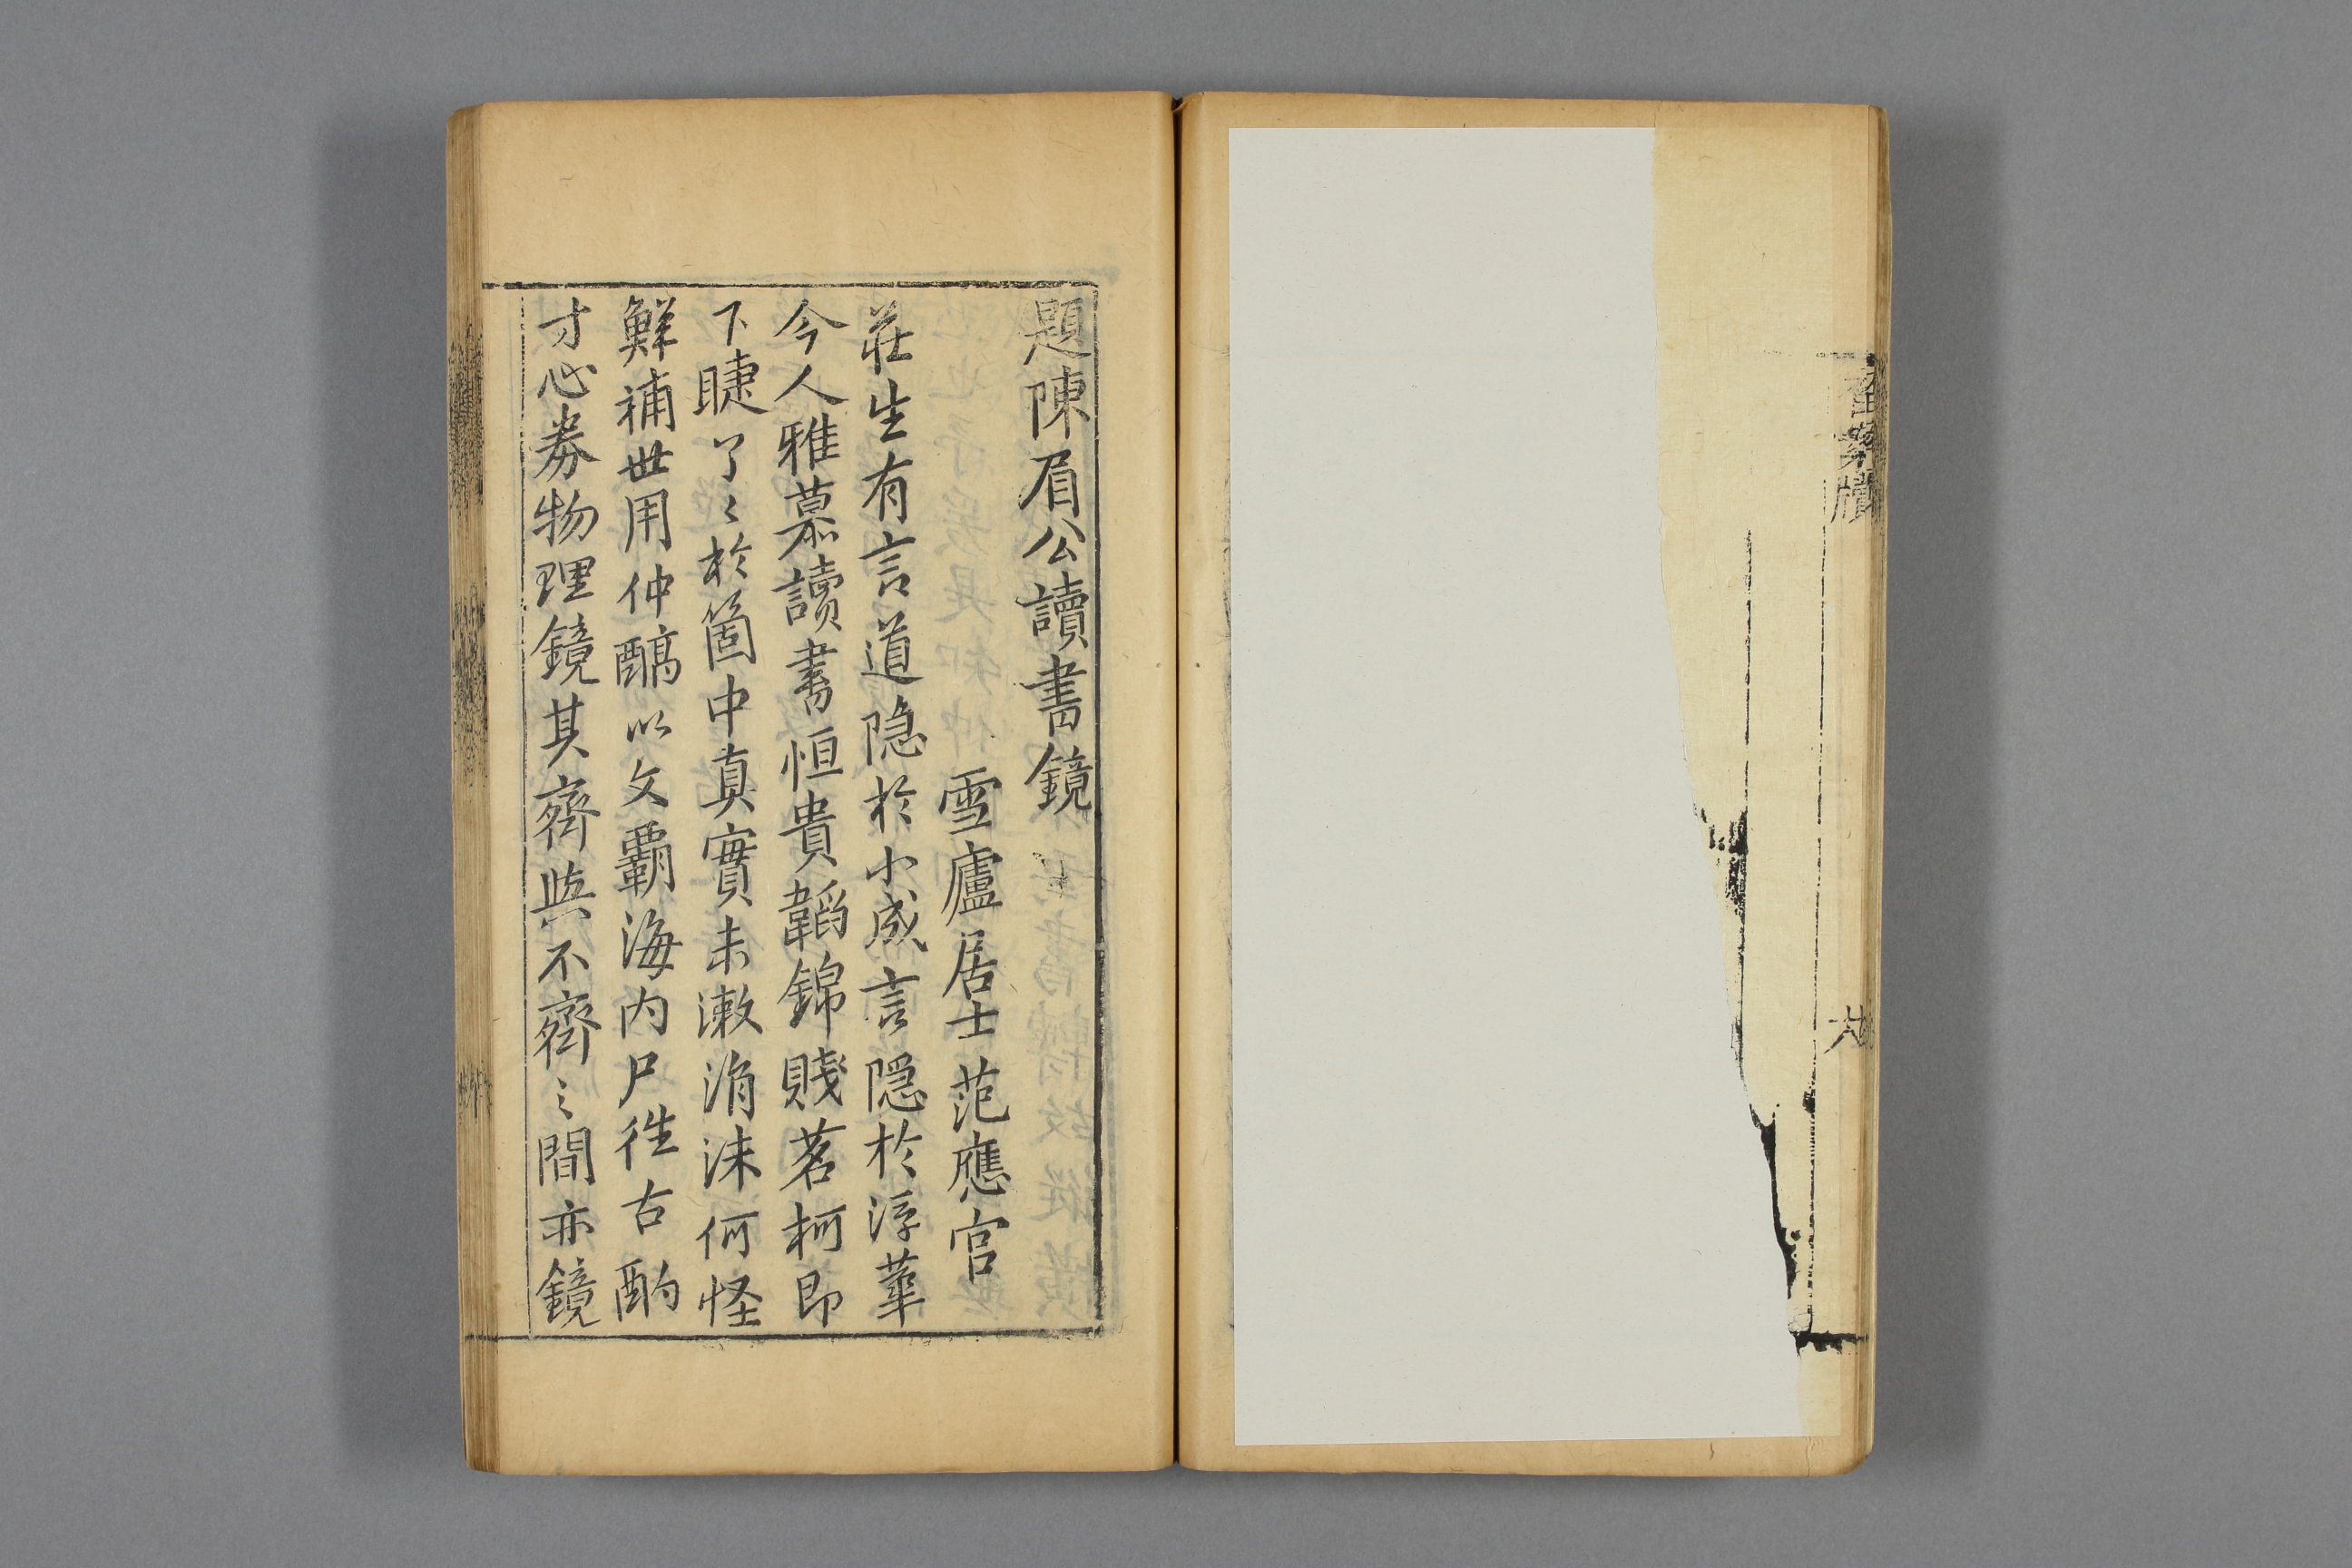 題陳眉公讀書鏡
雪廬居士范應宮
莊生有言道隐於小成言隱於浮華
今人雅慕讀書恒貴韜錦賤茗柯即
下睫了〻於箇中真實未漱涓沫何怪
鮮補世用仲醕以文覇海内尸徃古酌
寸心券物理鏡其齊與不齊〻間亦鏡